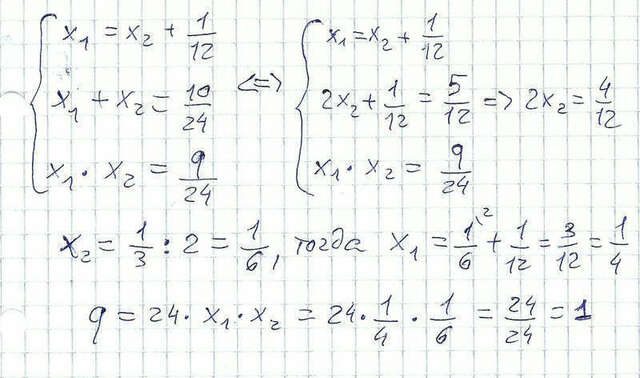 x₁ = x₂ + 1/12
x₁ + x₂ = 10/24
x₁ · x₂ = q/24
<=>
x₁ = x₂ + 1/12
2x₂ + 1/12 = 5/12 => 2x₂ = 4/12
x₁ · x₂ = q/24
x₂ = 1/3 : 2 = 1/6, тогда x₁ = 1\²/6 + 1/12 = 3/12 = 1/4
q = 24 · x₁ · x₂ = 24 · 1/4 · 1/6 = 24/24 = 1